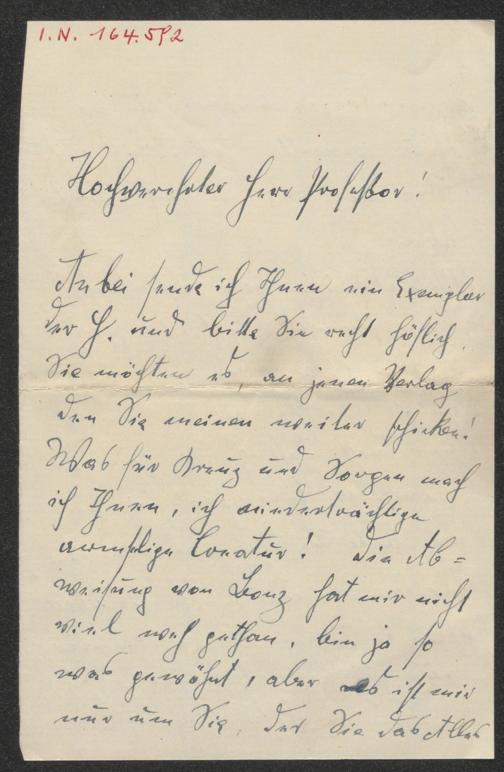 I.N. 164.592
Hochverehrter Herr Professor!
Anbei sende ich Ihnen ein Exemplar
der H. und bitte Sie recht höflich
Sie möchten es, an jenen Verlag
den Sie meinen weiter schicken!
Was für Kreuz und Sorgen mach
ich Ihnen, ich niederträchtige
armselige Creatur! Die Ab=
weisung von Bonz hat mir nicht
viel weh gethan, bin ja so
was gewöhnt, aber es ist mir
nur um Sie, der Sie das Alles